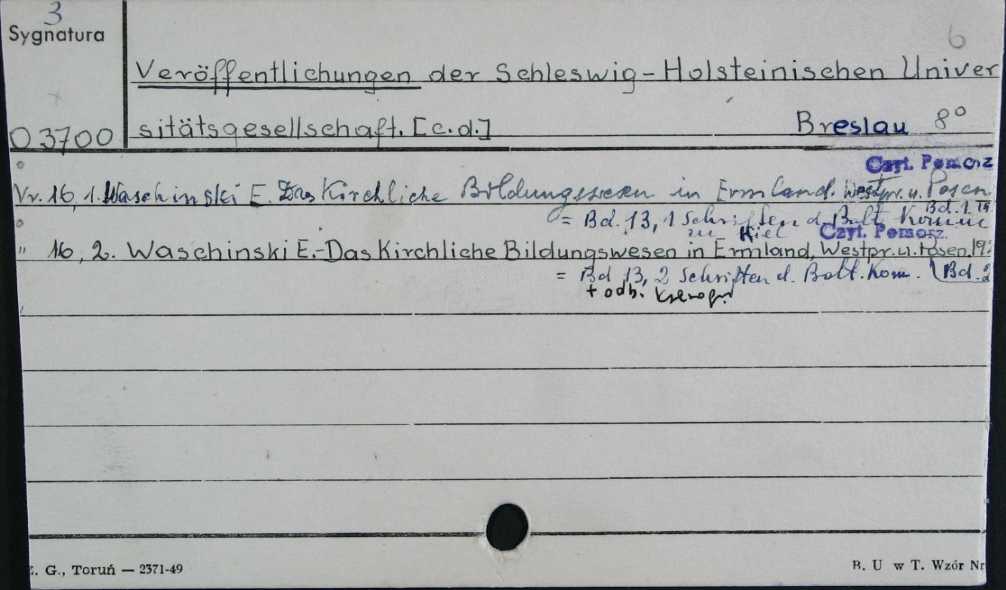 3
Sygnatura
6
Veröffentlichungen der Schleswig-Holsteinischen Univer
03700
sitätsgesellschaft. [c.d.] Breslau 8°
Czyt. Pomorz
Nr. 16, 1. Waschinski E. Das Kirchliche Bildungswesen in Ermland. Westpr. u. Posen
Bd. 1.
= Bd. 13, 1 Schriften d. Balt. Komm
zu Kiel
Czyt. Pomorz.
" 16, 2. Waschinski E.-Das Kirchliche Bildungswesen in Ermland, Westpr. u. Posen, 19
= Bd 13, 2 Schriften d. Balt. Kom. Bd. 2
+ odb. kserogr
. G., Toruń — 2371-49
B. U w T. Wzór Nr